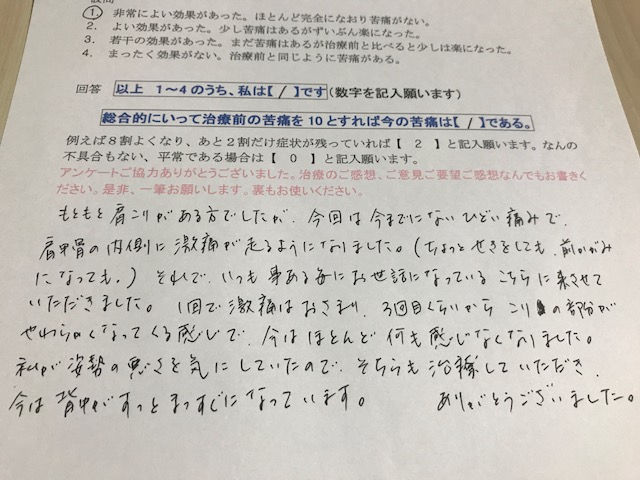 設問
① 非常によい効果があった。ほとんど完全になおり苦痛がない。
2. よい効果があった。少し苦痛はあるがずいぶん楽になった。
3. 若干の効果があった。まだ苦痛はあるが治療前と比べると少しは楽になった。
4. まったく効果がない。治療前と同じように苦痛がある。
回答 以上 1〜4のうち、私は【 / 】です(数字を記入願います)
総合的にいって治療前の苦痛を10とすれば今の苦痛は【 / 】である。
例えば8割よくなり、あと2割だけ症状が残っていれば【 2 】と記入願います。なんの
不具合もない、平常である場合は【 0 】と記入願います。
アンケートご協力ありがとうございました。治療のご感想、ご意見ご要望ご感想なんでもお書きく
ださい。是非、一筆お願いします。裏もお使いください。
もともと肩こりがある方でしたが、今回は今までにないひどい痛みで、
肩甲骨の内側に激痛が走るようになりました。(ちょっとせきをしても、前かがみ
になっても。) それで、いつも事ある毎にお世話になっているこちらに来させて
いただきました。 1回で激痛はおさまり、3回目くらいから こりの部分が
やわらかくなってくる感じで、今はほとんど何も感じなくなりました。
私が姿勢の悪さを気にしていたので、そちらも治療していただき、
今は背中がすっとまっすぐになっています。 ありがとうございました。